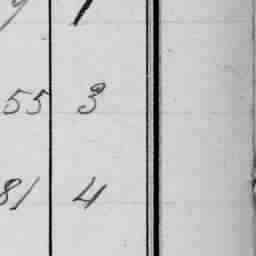 9 1
55 3
81 4